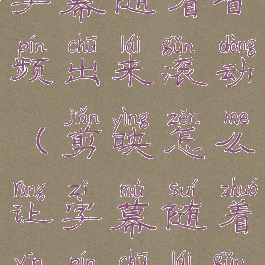 字幕随着
pín chū lái gǔn dòng
频出来滚动
jiǎn yìng zěn me
（剪映怎么
ràng zì mù suí zhuó
让字幕随着
yīn pín chū lái gǔn